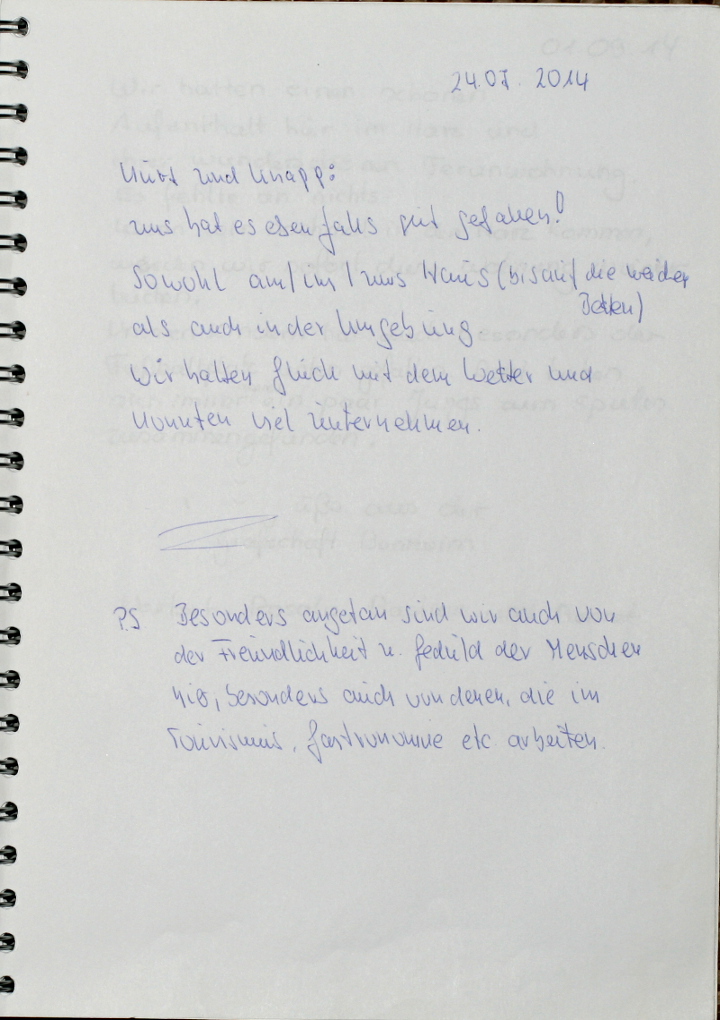 24.07. 2014
Kurz und Knapp:
uns hat es ebenfalls gut gefallen!
Sowohl am/im/ums Haus (bis auf die weichen
Betten)
als auch in der Umgebung
wir hatten Glück mit dem Wetter und
konnten viel unternehmen.
PS Besonders angetan sind wir auch von
der Freundlichkeit u. Geduld der Menschen
hier, besonders auch von denen, die im
Tourismus, Gastronomie etc. arbeiten.